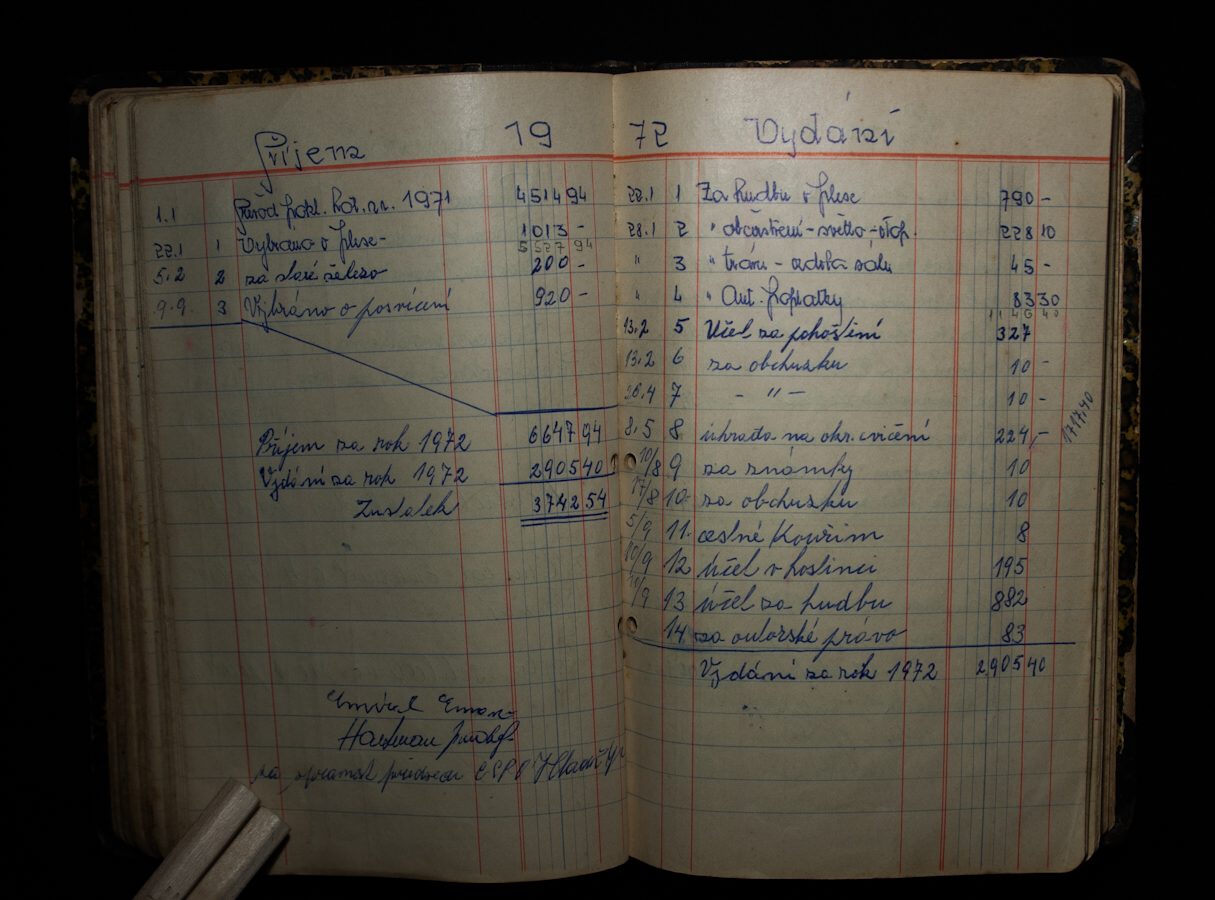 Příjem 19
1.1 Převod pokl. hot. na r. 1971 4514 94
22.1 1 Vybráno v plese - 1013 -
5527 94
5.2 2 za staré železo 200 -
9.9. 3 Vybráno o posvícení 920 -
Příjem za rok 1972 6647 94
Vydání za rok 1972 2905 40
Zustatek 3742 54
Hartman
72 Vydání
22.1 1 Za hudbu v plese 790 -
28.1 2 " občerstvení - světlo - otop. 228 10
" 3 " - ozdoba sálu 45 -
" 4 " Aut. poplatky 83 30
1146 40
13.2 5 Účet za pohoštění 327
13.2 6 za obchuzku 10 -
26.4 7 - " - 10 -
8.5 8 úhrada na okr. cvičení 224,-
1717,40
10/8 9 za známky 10
17/8 10 za obchuzku 10
5/9 11. cestné Kouřim 8
10/9 12 účet v hostinci 195
/9 13 účet za hudbu 882
14 za autorské právo 83
Vydání za rok 1972 2905 40